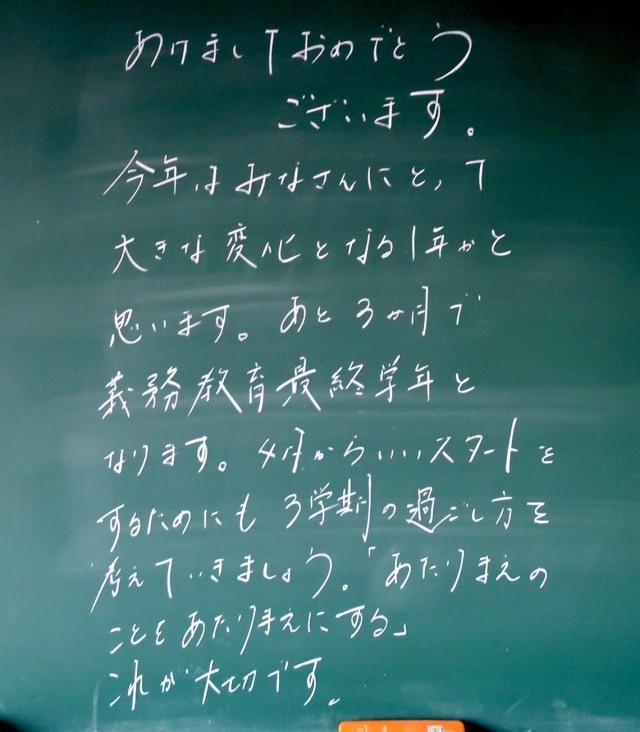 あけましておめでとう
ございます。
今年はみなさんにとって
大きな変化となる1年かと
思います。あと3か月で
義務教育最終学年と
なります。4月からいいスタートを
するためにも3学期の過ごし方を
考えていきましょう。「あたりまえの
ことをあたりまえにする」
これが大切です。